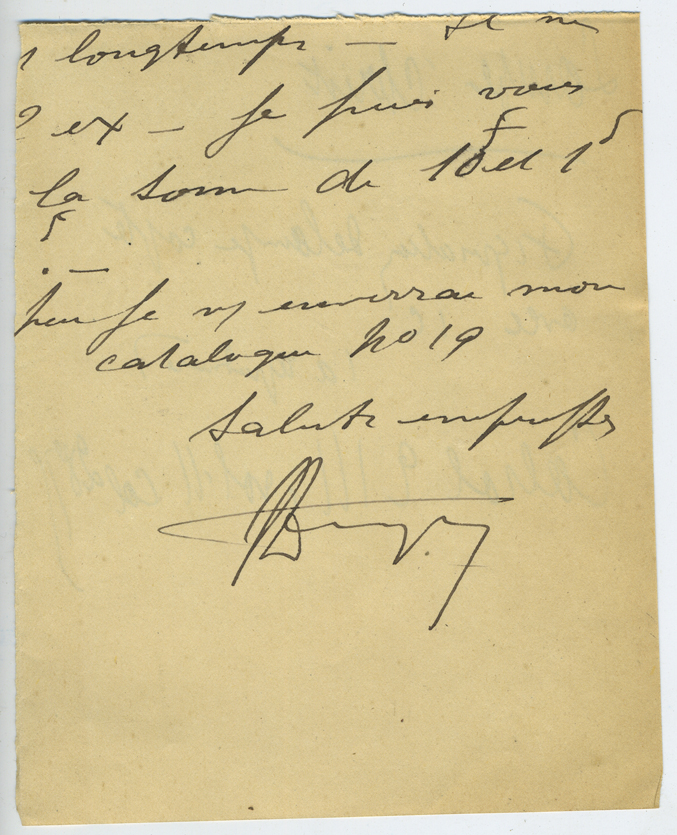 longtemps — Il ne
ex — Je puis vous
la somme de 10f et 1f
peu Je vs enverrai mon
catalogue No 19
Saluts empressés